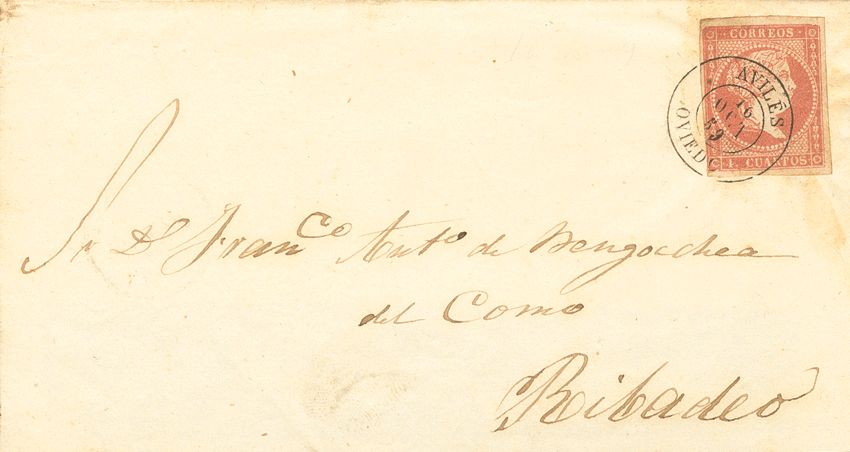 CORREOS
AVILÉS
16
OCT
59
OVIEDO
4 CUARTOS
Sr Dn Franco Anto de Bengoechea
del Como
Ribadeo